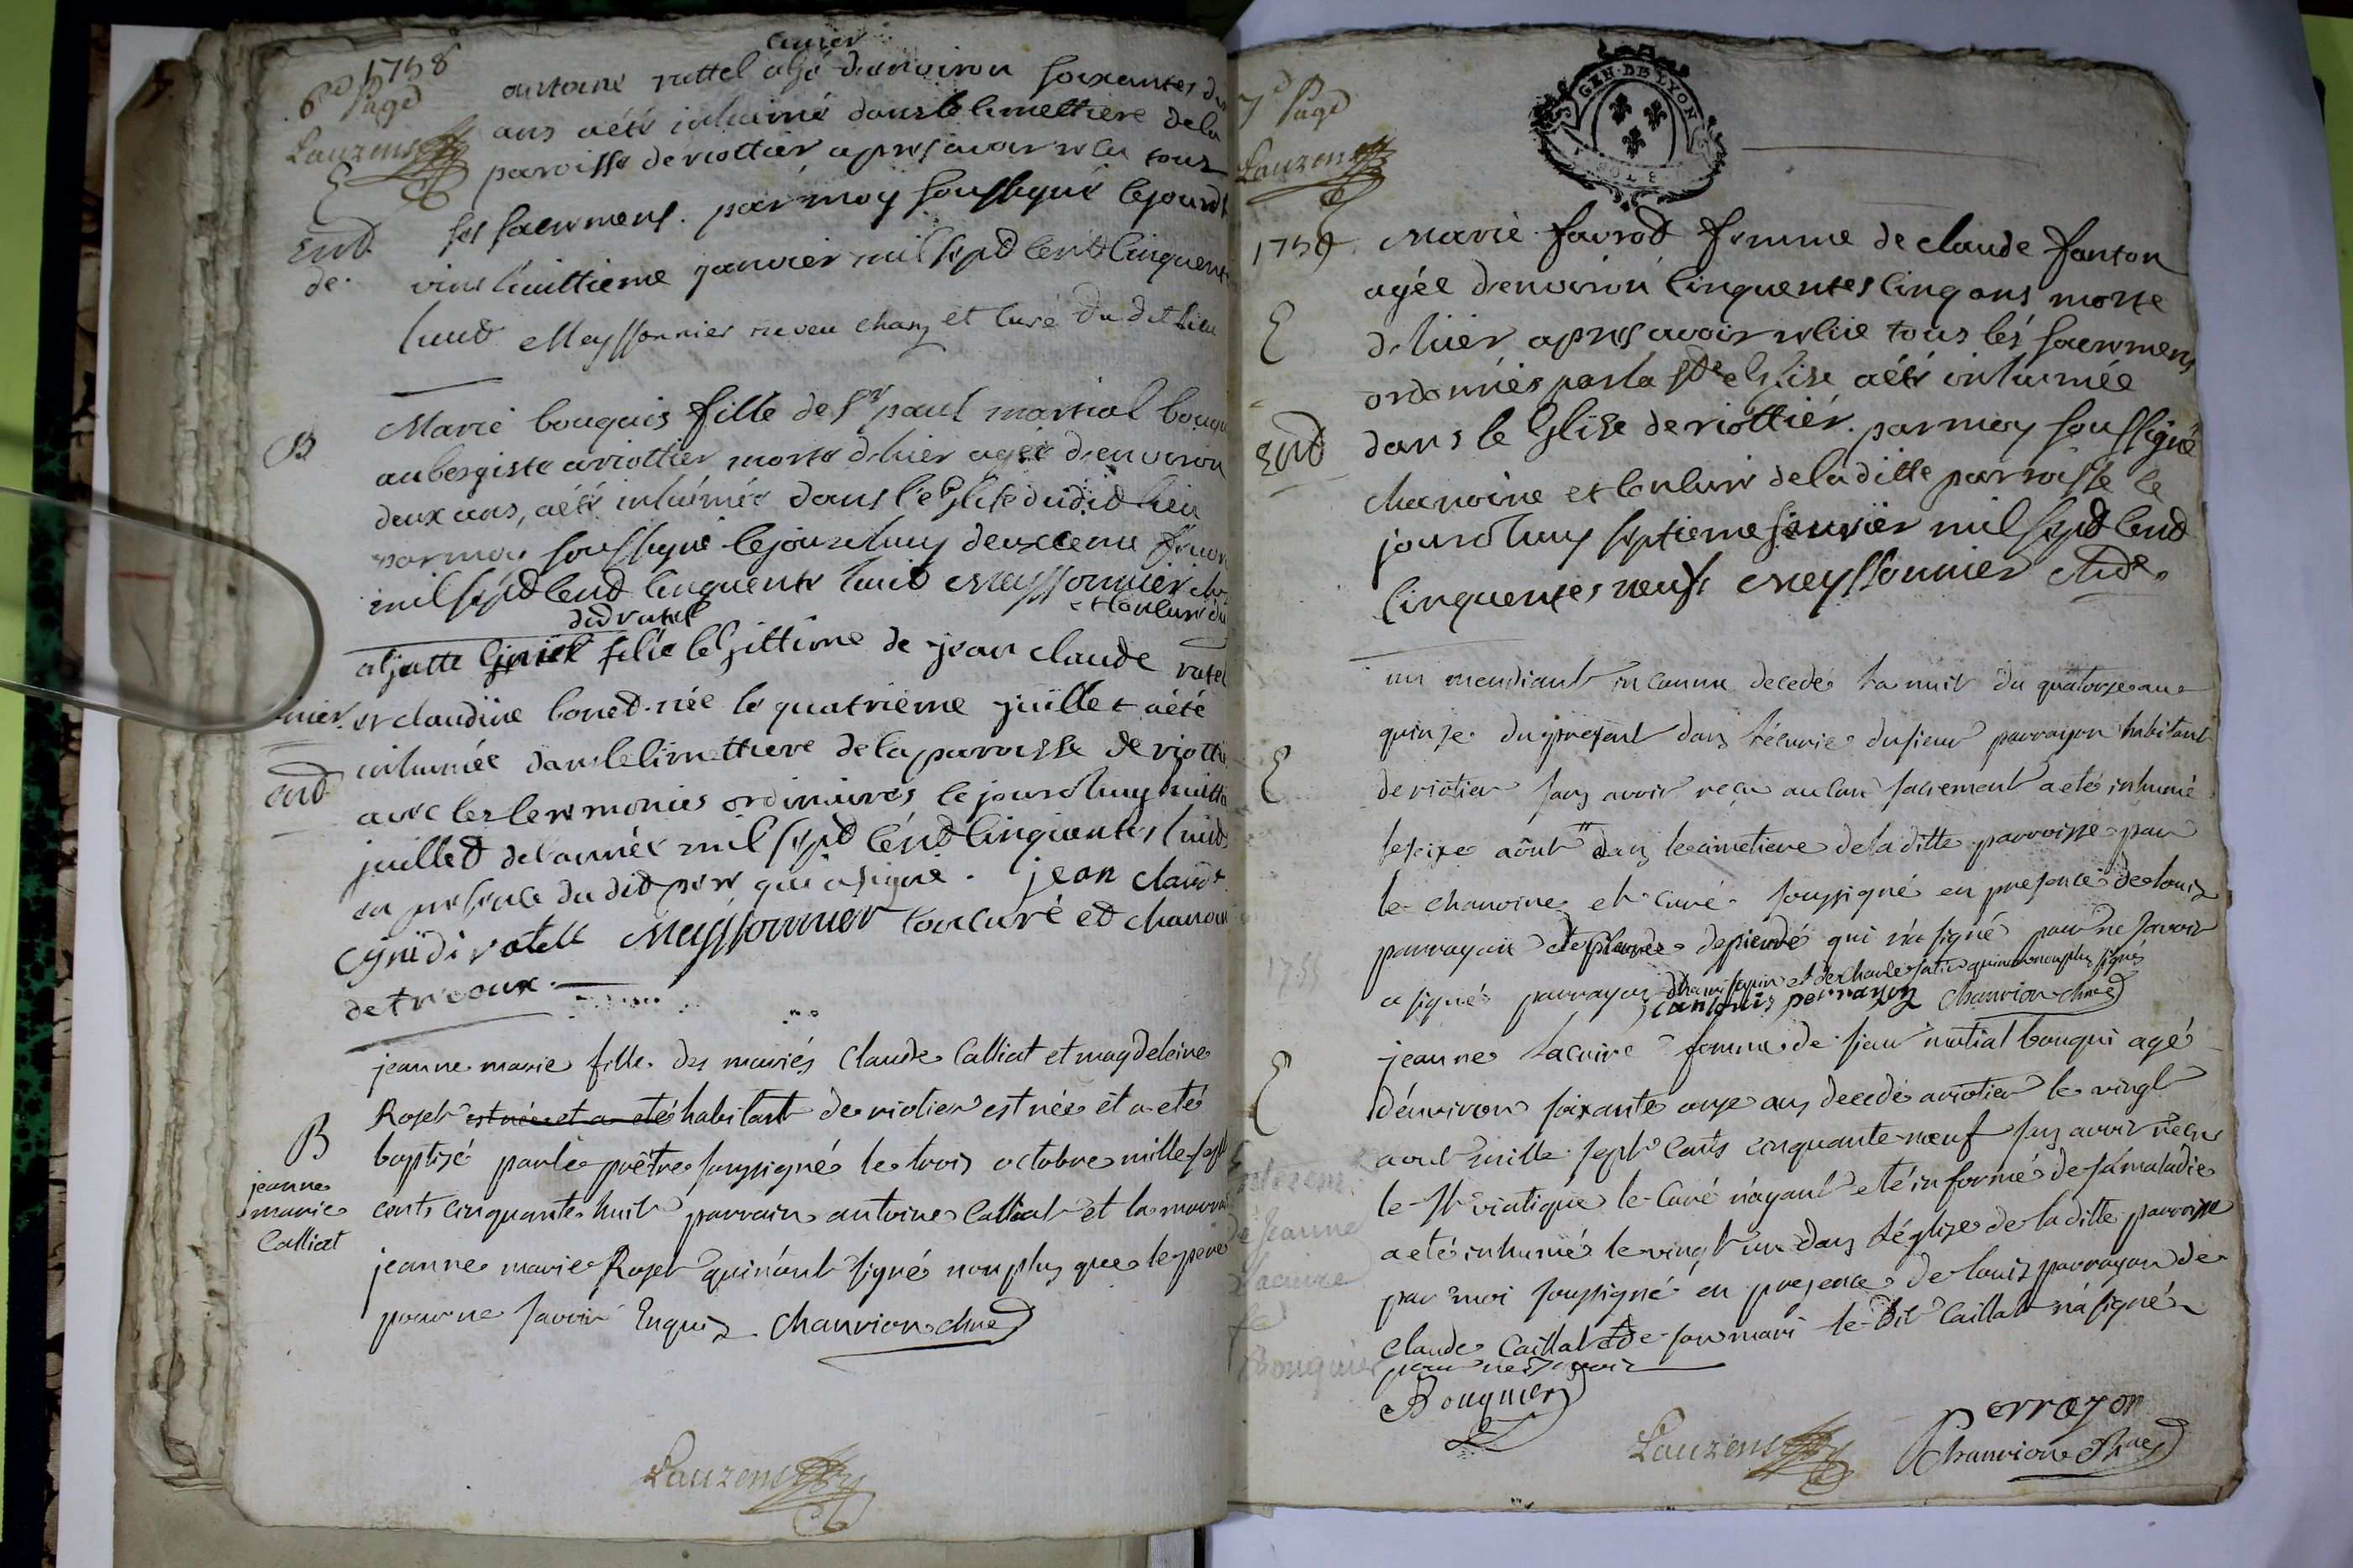 1758
6e page
Lauzens
E
End
de.
antoine rattel agé denviron soixantes
ans aété inhumé dans le simettiere de la
paroisse de riottier apres avoir reçu tous
ses sacremens. par moy soussigné lejourd
vins huittieme janvier mil sept cent cinquent
huit Meyssonnier neveu chanz et curé du dit lieu
B
Marie bouquis fille de sr paul martial bouqu
aubergiste a riottier morte d'hier agée denviron
deux ans, aété inhumée dans l'eglise dudit lieu
par moi soussigné lejourdhuy deuxieme
mil sept cent cinquente huit Meyssonnier
did ratel
fille legittime de jean claude ratel
et claudine bonet née le quatrieme juillet aété
End
inhumée dans le simettiere de la paroisse de riottie
avec les ceremonies ordinaires le jourdhuy huitt
juillet de l'année mil sept cent cinquantes huit
en presence du dit pere qui a signé. jean claude
Meyssonnier concuré et chanoin
de trevoux.
B
jeanne
marie
Calliat
jeanne marie fille des mariés Claude Calliat et magdeleine
Roset est née et a eté habitant de riotier est née et a eté
baptisé par le prêtre soussigné le trois octobre mille sept
cents cinquante huit parrain antoine Calliat et la marrai
jeanne marie Roset qui n'ont signé non plus que le pere
pour ne savoir Enquis Chanrion chne
Lauzens
7e page
Lauzens
GEN. DE LYON
1759
E
End
Marie favrod femme de claude fanton
agée denviron cinquentes cinq ans morte
d'hier apres avoir reçue tous les sacremens
ordonnés par la ste eglise aété inhumée
dans leglise de riottier. par moy soussigné
chanoine et concuré de la ditte parroisse le
jourdhuy septieme janvier mil sept cent
cinquentes neufs Meyssonnier
E
un mendiant inconnu decedé la nuit du quatorze au
quinze du present dans l'écurie du sieur parrayon habitant
de riotier sans avoir reçu aucun sacrement a eté inhumé
le seize aôut dans le cimetiere de la ditte parroisse par
le chanoine et curé soussigné en presence de louis
parrayon et de pierre qui n'a signé pour ne savoir
a signé parrayon et de charle qui n'ont non plus signés
perrayon Chanrion chne
E
jeanne Lacuire femme de sieur matial bouqui agé
d'environ soixante onze ans decedé a riotier le vingt
aout mille sept cents cinquante neuf sans avoir reçu
le st viatique le Curé n'ayant eté informé de sa maladie
a eté inhumé le vingt un dans l'église de la ditte parroisse
par moi soussigné en presence de louis parrayon de
Claude Caillat et de son mari le dit Caillat n'a signé
pour ne savoir
Bouquier
Lauzens
perrayon
Chanrion Chne
enterrem.
de Jeanne
Lacuire
fe
Bouquier